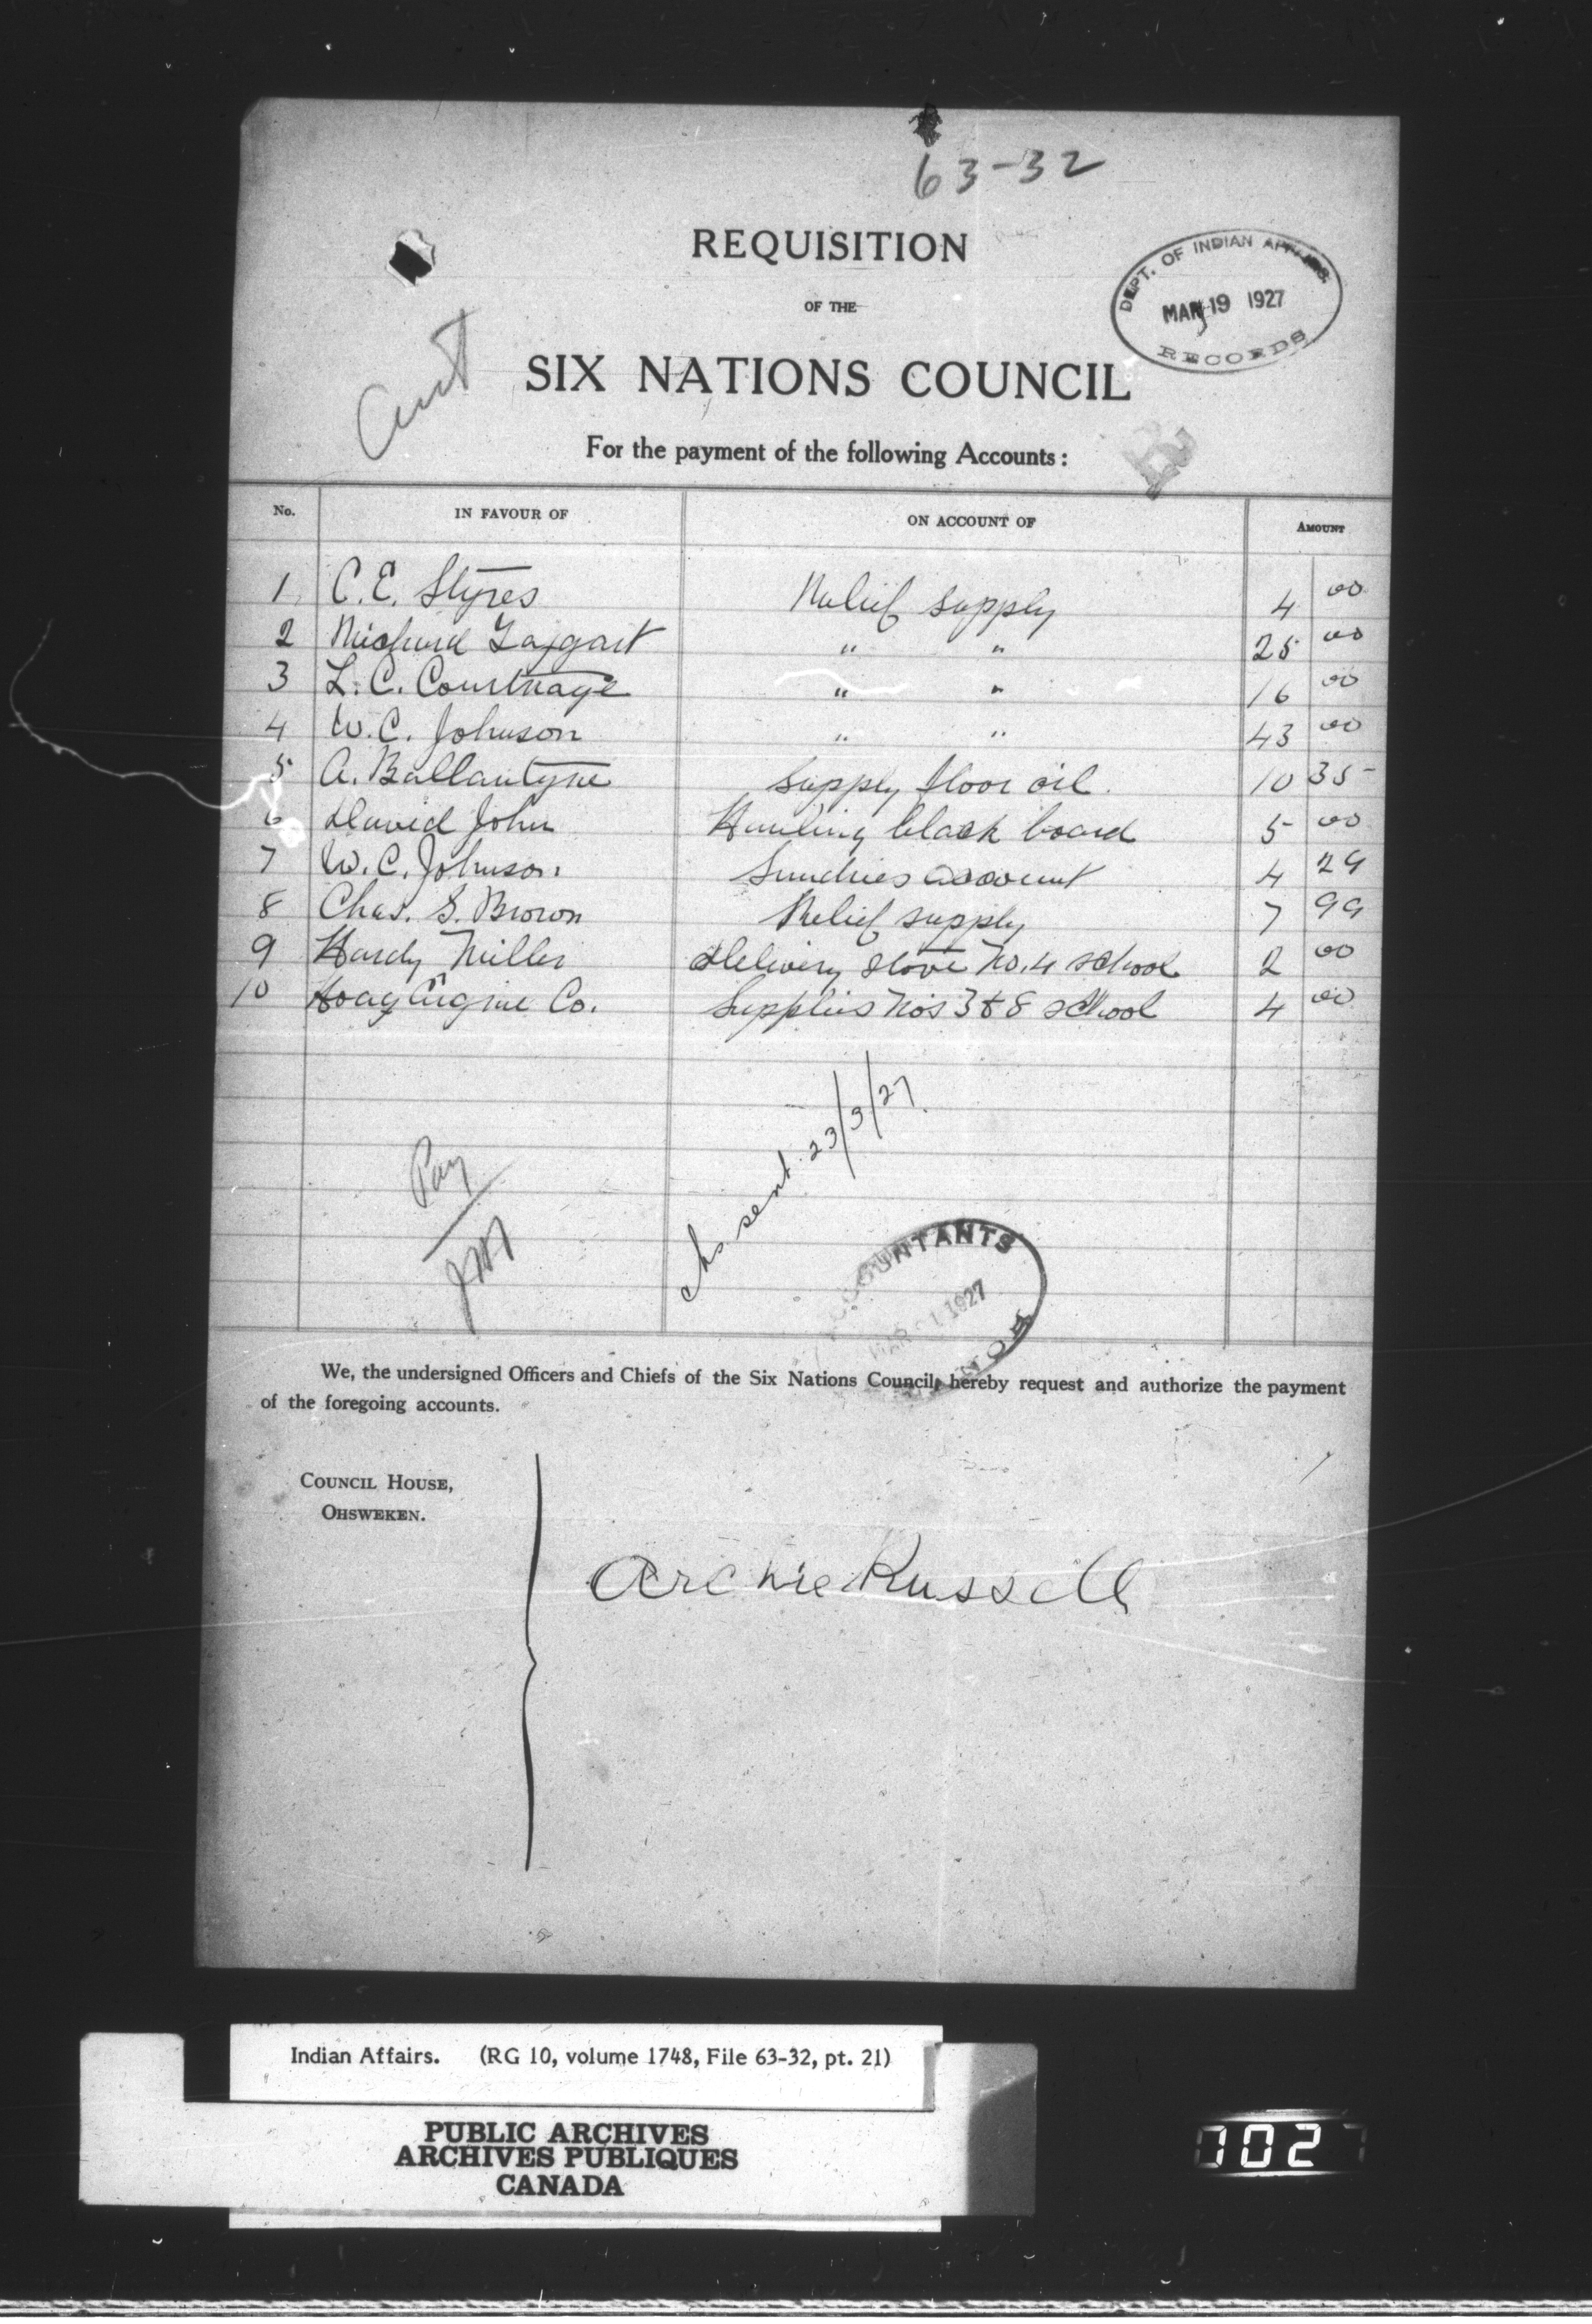 63-32
REQUISITION
OF THE
SIX NATIONS COUNCIL
DEPT. OF INDIAN AFFAIRS.
MAR 19 1927
RECORDS
For the payment of the following Accounts:
No. IN FAVOUR OF ON ACCOUNT OF AMOUNT
1 C. E. Styres Relief supply 4 00
2 Michael Taggart " " 25 00
3 L. C. Courtnage " " 16 00
4 W. C. Johnson " " 43 00
5 A. Ballantyne Supply floor oil. 10 35
6 David John Hauling black board 5 00
7 W. C. Johnson Sundries account 4 29
8 Chas. S. Brown Relief supply 7 99
9 Hardy Miller Delivery stove No. 4 school 2 00
10 Co. Supplies No's 3 & 8 school 4 00
Pay
chs sent. 23/3/27.
ACCOUNTANTS
MAR 21 1927
We, the undersigned Officers and Chiefs of the Six Nations Council, hereby request and authorize the payment
of the foregoing accounts.
COUNCIL HOUSE,
OHSWEKEN.
Archie Russell
Indian Affairs. (RG 10, volume 1748, File 63-32, pt. 21)
PUBLIC ARCHIVES
ARCHIVES PUBLIQUES
CANADA